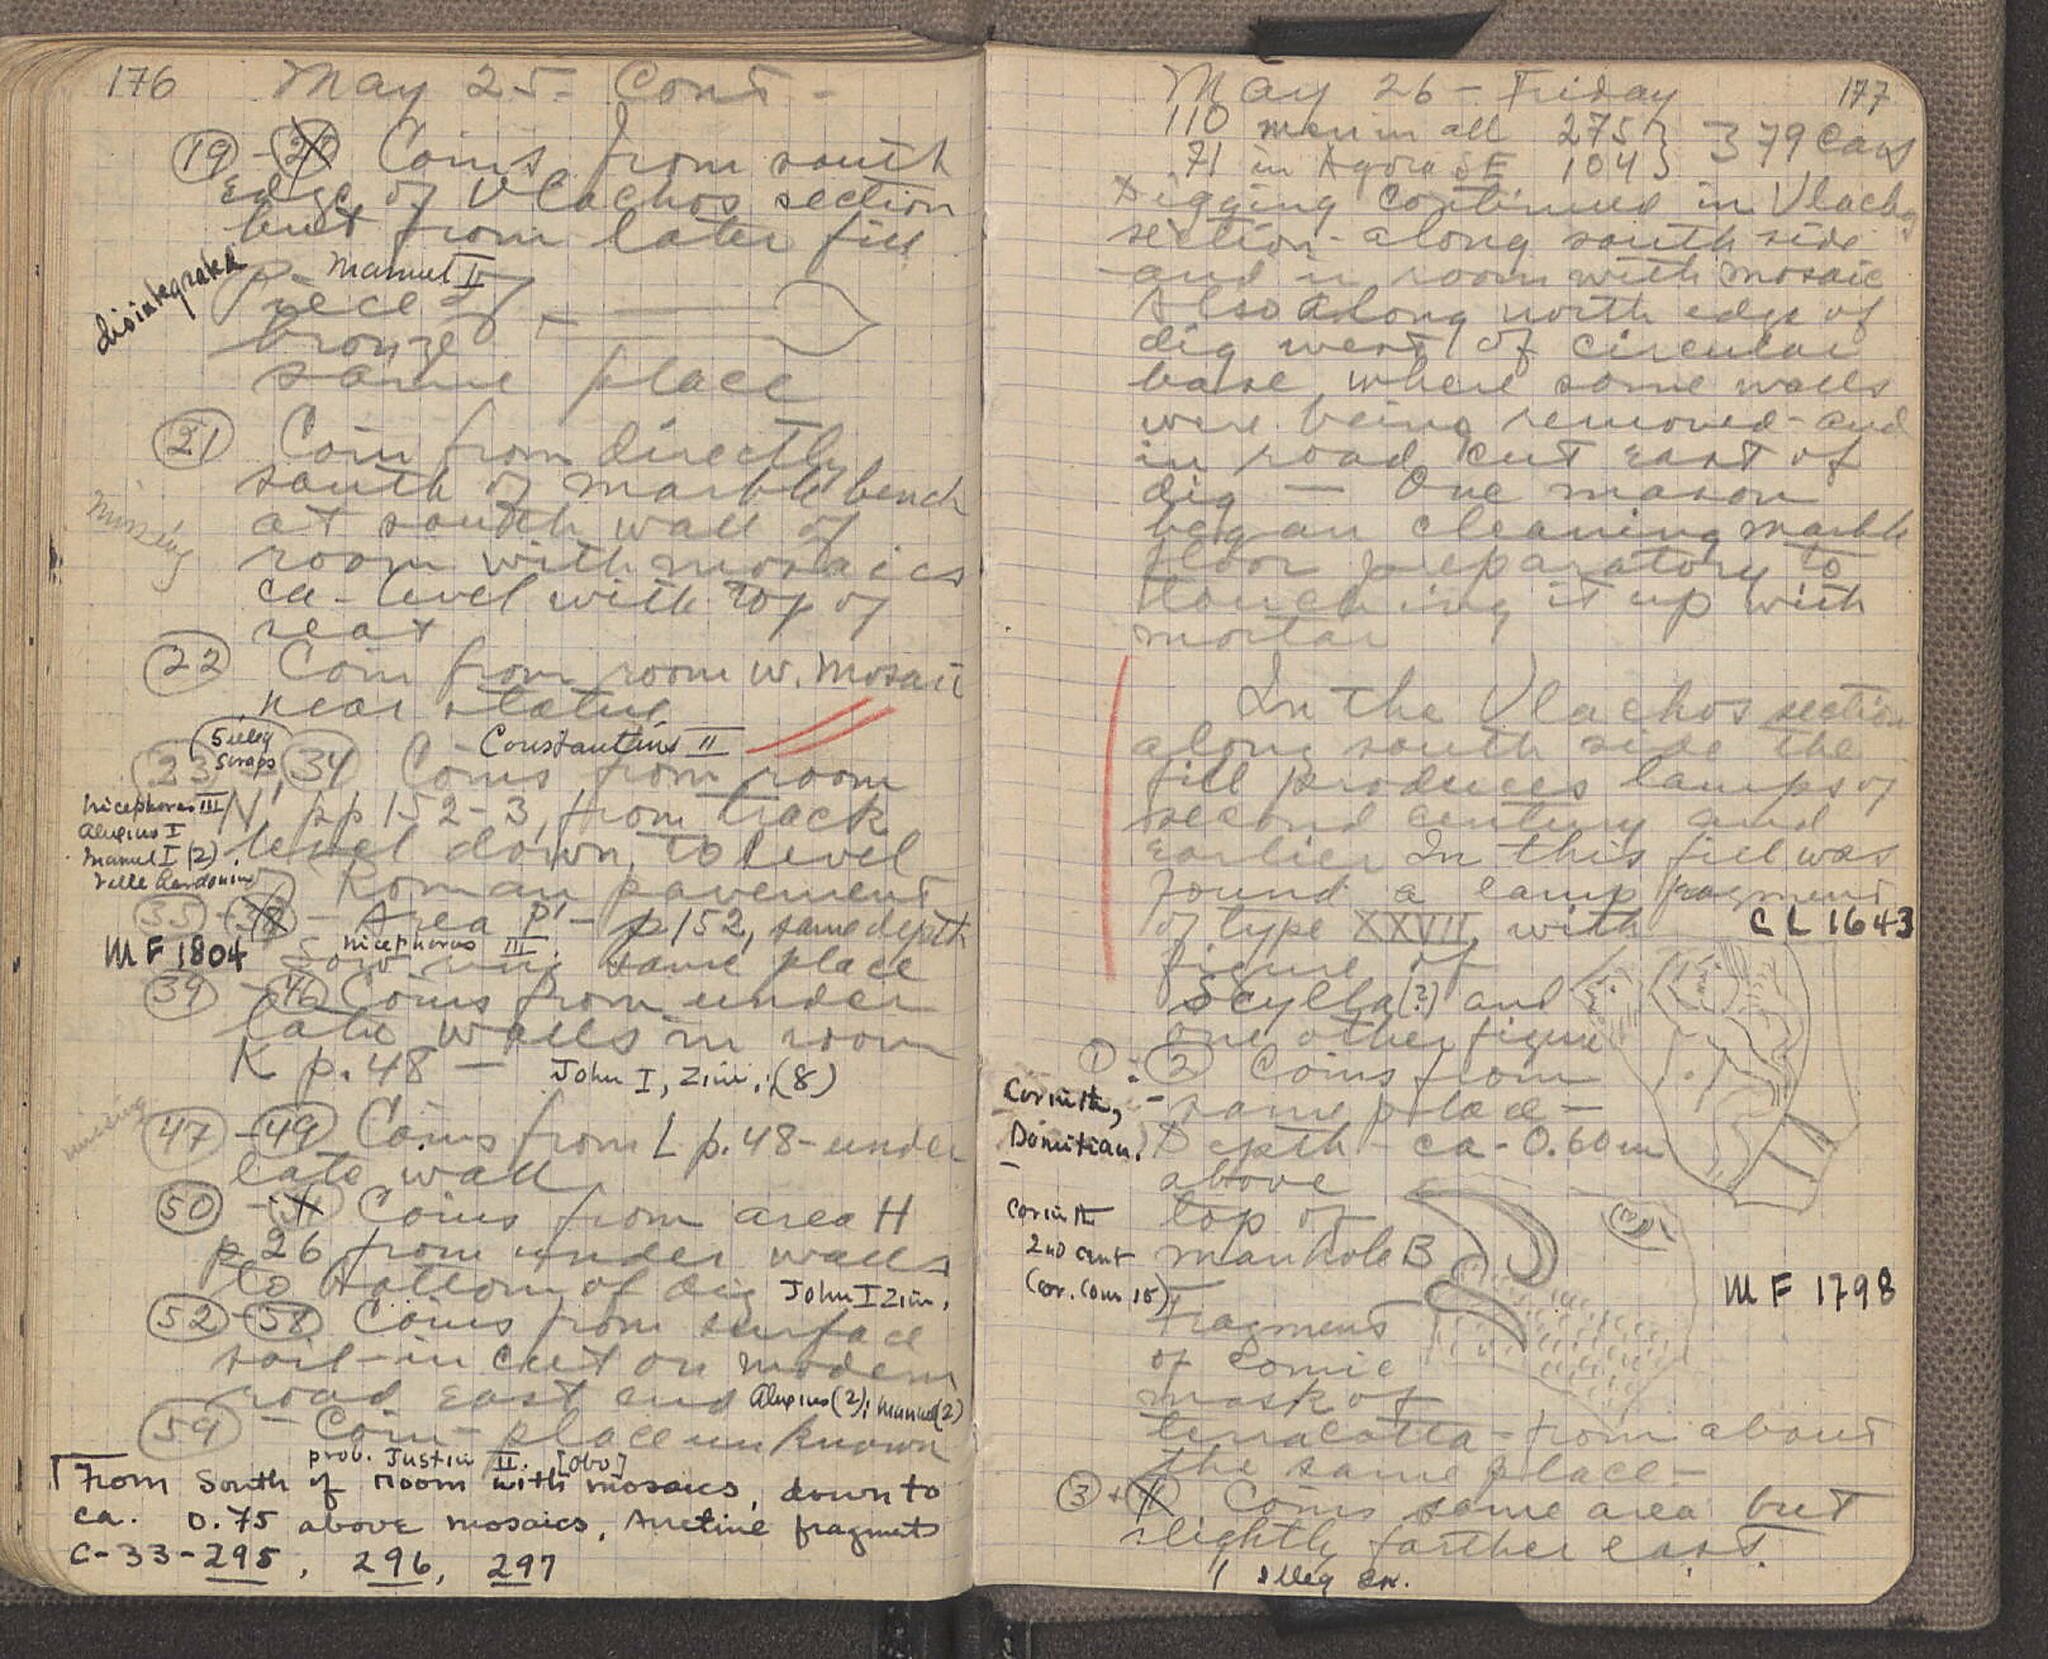 176 May 25 - Cont -
19 - 20 Coins from south
edge of Vlachos section
but from later fill
Manuel II
disintegrated
Piece of
bronze
same place
21 Coin from directly
south of marble bench
missing
at south wall of
room with mosaics
ca - level with top of
seat
22 Coin from room w. mosaic
near statue
Constantius II
5 illeg
scraps
23 - 34 Coins from room
Nicephorus III
N' pp 152-3, from track
Alexius I
Manuel I (2)
level down to level
Ville Hardouin
of Roman pavement
35 - 38 - Area P' - p 152, same depth
Nicephorus III
MF 1804
same place
39 - 46 Coins from under
late walls in room
K p. 48 -
John I, Zim.; (8)
missing
47 - 49 Coins from L p. 48 - under
late wall
50 - 51 Coins from area H
p 26 from under walls
to bottom of dig
John I Zim.
52 - 58 Coins from surface
soil - in cut on modern
road east end
Alexius (2); Manuel (2)
59 - Coin - place unknown
prob. Justin II. [obv]
From South of room with mosaics, down to
ca. 0.75 above mosaics, Arretine fragments
C-33-295, 296, 297
May 26 - Friday 177
110 men in all 275 } 379 cars
71 in Agora SE 104 }
Digging continued in Vlachos
section - along south side
and in room with mosaic
Also along north edge of
dig west of circular
base where some walls
were being removed - and
in road cut east of
dig - One mason
began cleaning marble
floor preparatory to
touching it up with
mortar
In the Vlachos section
along south side the
fill produces lamps of
second century and
earlier In this fill was
found a lamp fragment
of type XXVII with
CL 1643
figure of
Scylla (?) and
one other figure
1 - 2 Coins from
same place -
Corinth,
Domitian.
Depth - ca - 0.60 m
above
top of
manhole B
Corinth
2nd cent
(Cor. Com 15)
MF 1798
Fragment
of comic
mask of
terracotta - from about
the same place -
3 + 4 Coins same area but
slightly farther east.
1 illeg